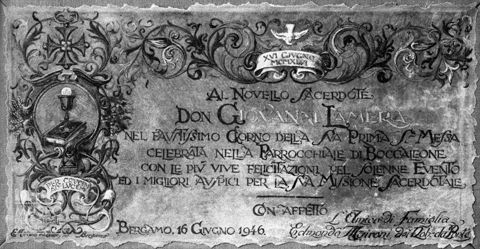 XVI GIUGNO
MCMXLVI
AL NOVELLO SACERDOTE:
DON GIOVANNI LAMERA
NEL FAVSTISSIMO GIORNO DELLA SVA PRIMA Sª MESSA
CELEBRATA NELLA PARROCCHIALE DI BOCCALEONE
CON LE PIV VIVE FELICITAZIONI PEL SOLENNE EVENTO
ED I MIGLIORI AVSPICI PER LA SVA MISSIONE SACERDOTALE.
CON AFFETTO
L'Amico di Famiglia
BERGAMO, 16 GIVGNO 1946.
Edmondo